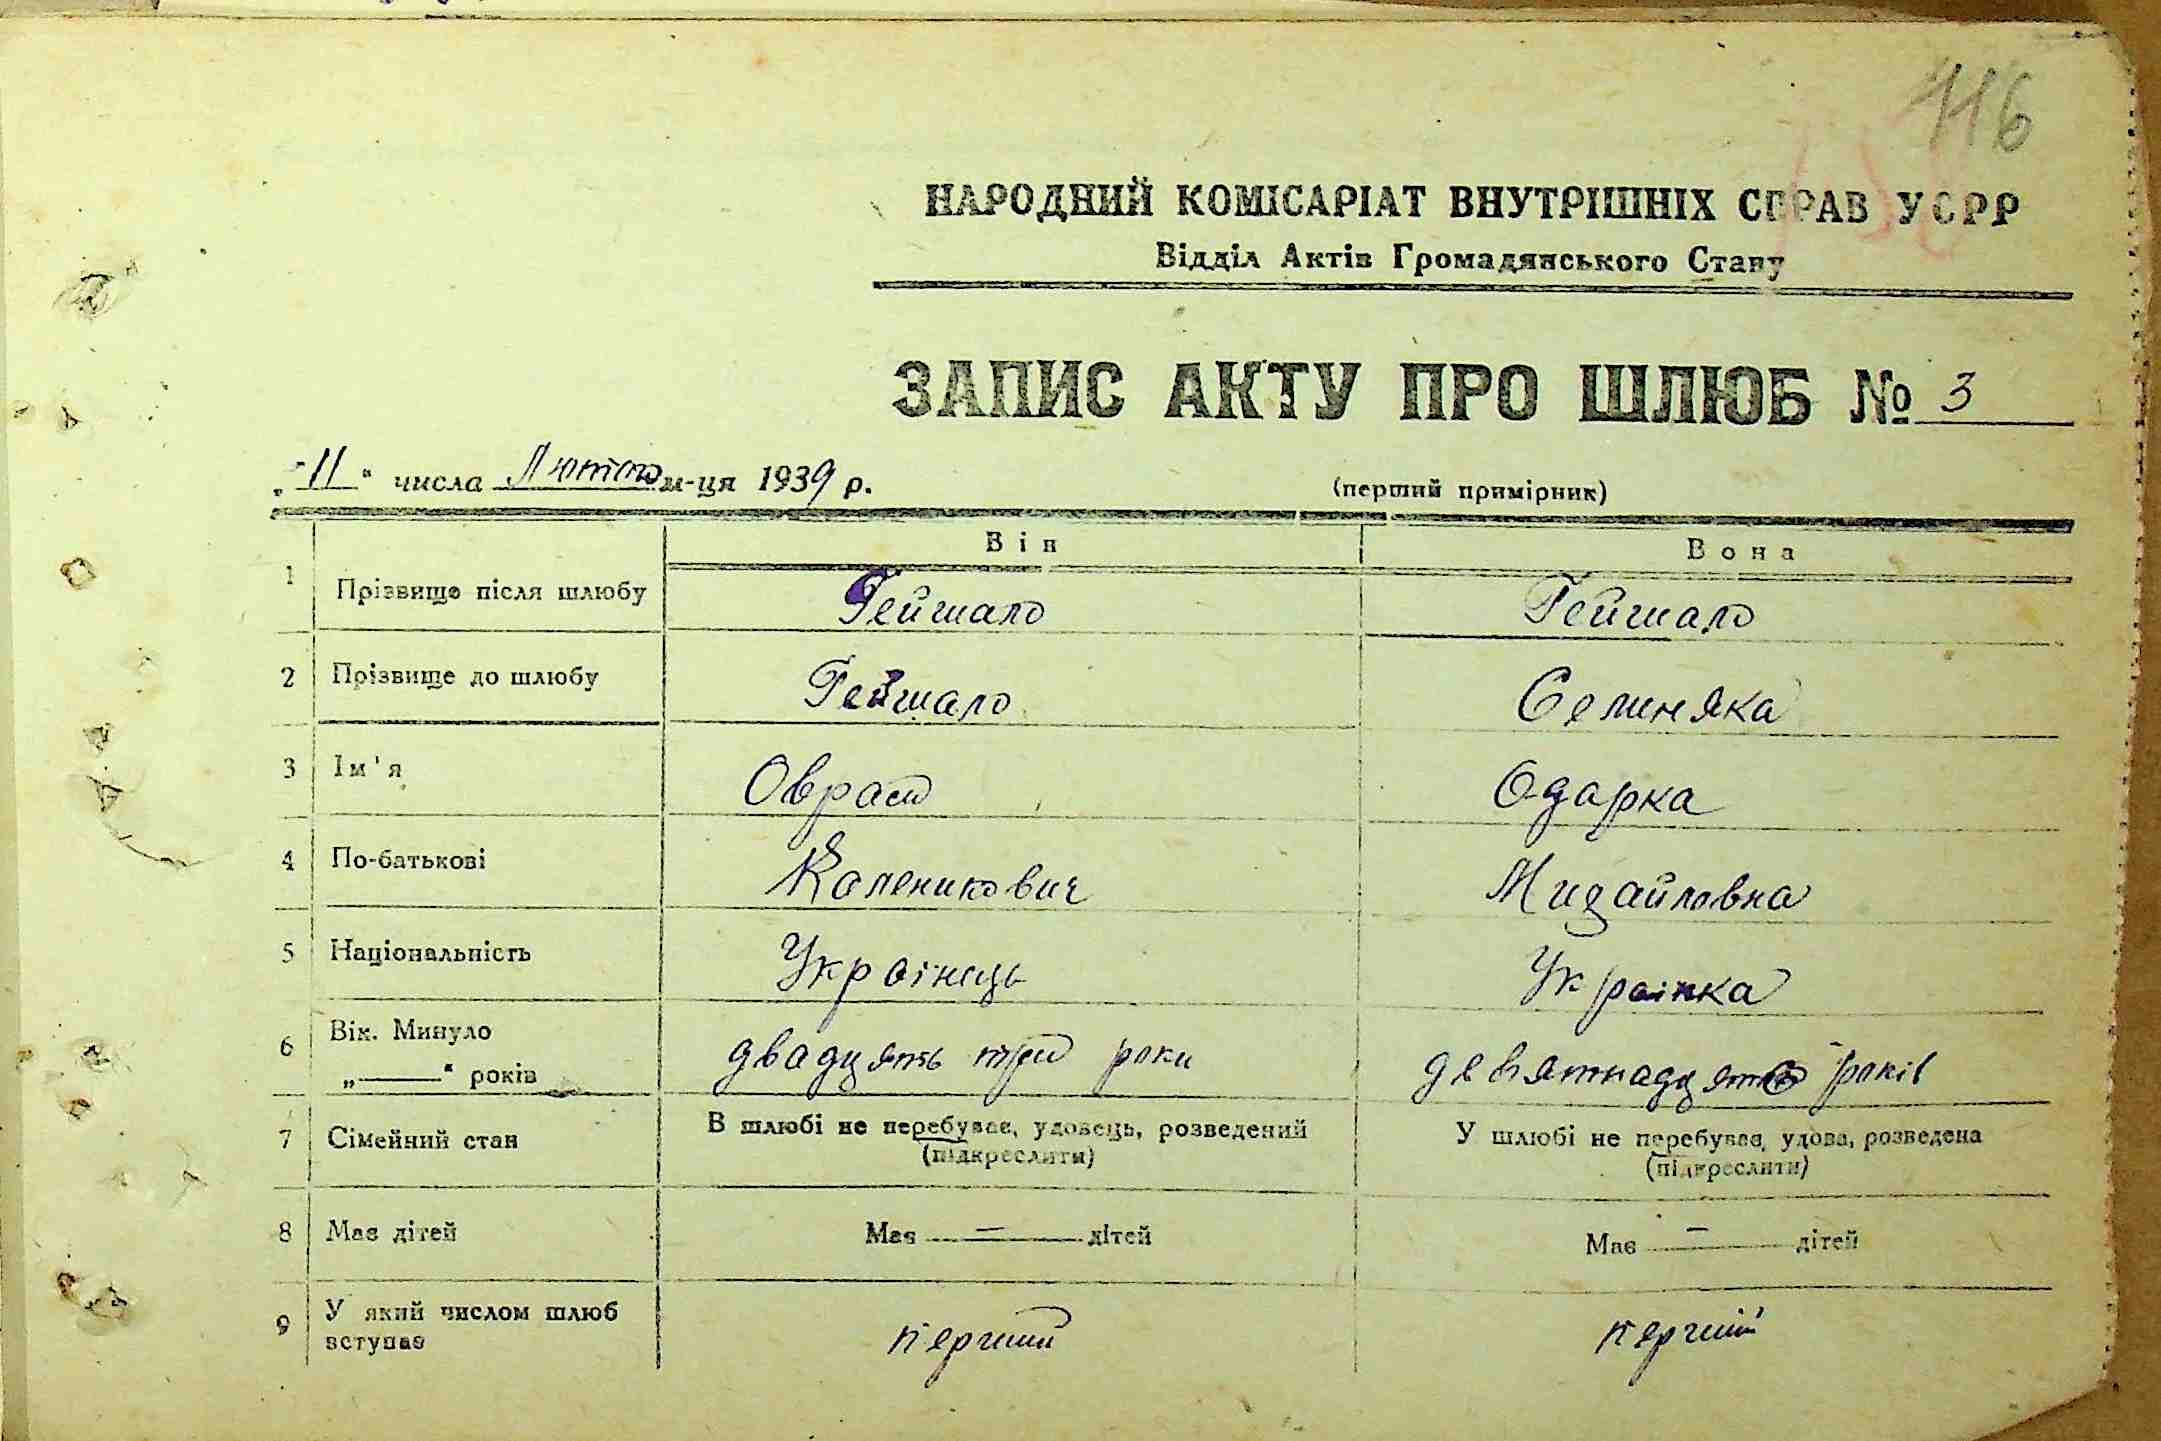 116
НАРОДНИЙ КОМІСАРІАТ ВНУТРІШНІХ СПРАВ УСРР
Відділ Актів Громадянського Стану
ЗАПИС АКТУ ПРО ШЛЮБ № 3
„11“ числа Лютого м-ця 1939 р. (перший примірник)
Він Вона
1 Прізвище після шлюбу Гейшало Гейшало
2 Прізвище до шлюбу Гейшало Селиняка
3 Ім'я Оврам Одарка
4 По-батькові Каленикович Михайловна
5 Національність Українець Українка
6 Вік. Минуло двадцять три роки девятнадцять років
„——“ років
7 Сімейний стан В шлюбі не перебуває, удовець, розведений У шлюбі не перебуває, удова, розведена
(підкреслити) (підкреслити)
8 Має дітей Має — дітей Має — дітей
9 У який числом шлюб перший перший
вступає